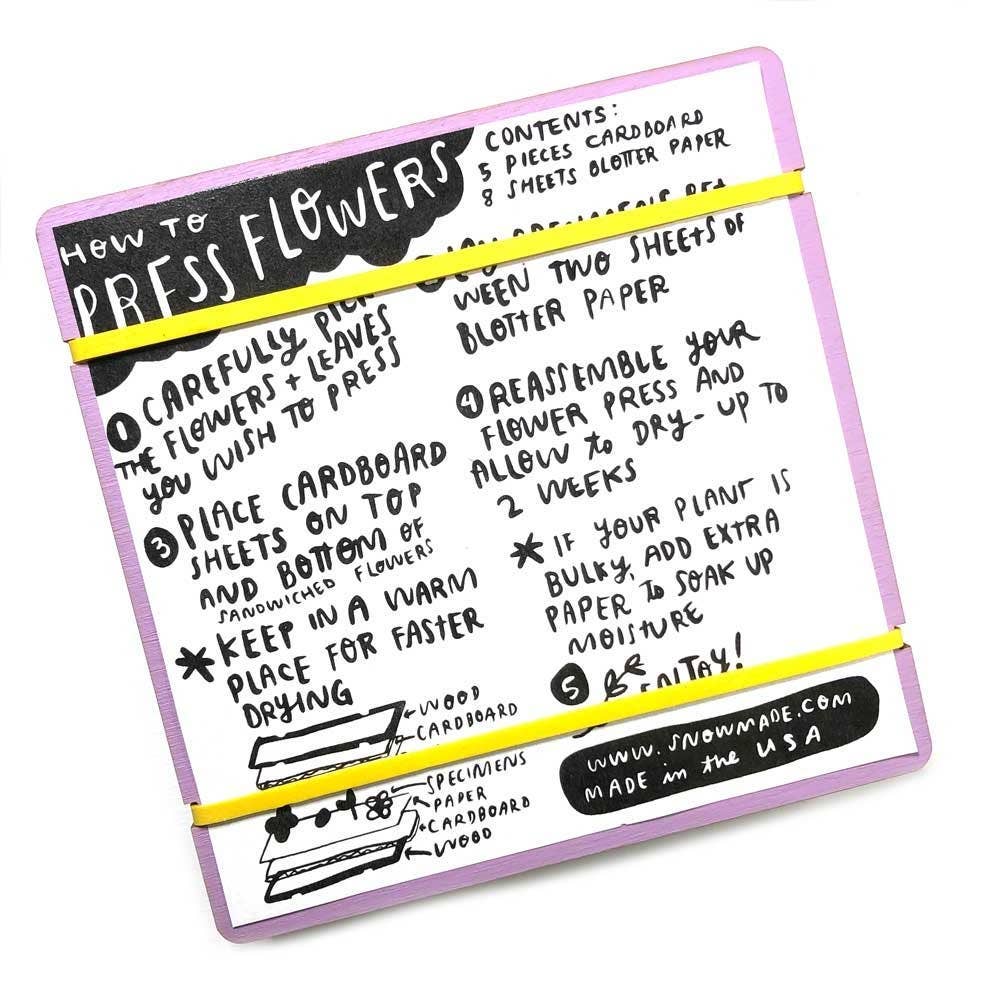 HOW TO
PRESS FLOWERS
CONTENTS:
5 PIECES CARDBOARD
8 SHEETS BLOTTER PAPER
1 CAREFULLY PICK
THE FLOWERS + LEAVES
YOU WISH TO PRESS
LAY SPECIMENS BET
WEEN TWO SHEETS OF
BLOTTER PAPER
3 PLACE CARDBOARD
SHEETS ON TOP
AND BOTTOM OF
SANDWICHED FLOWERS
* KEEP IN A WARM
PLACE FOR FASTER
DRYING
4 REASSEMBLE YOUR
FLOWER PRESS AND
ALLOW to DRY - UP TO
2 WEEKS
* IF YOUR PLANT IS
BULKY, ADD EXTRA
PAPER To SOAK UP
MOISTURE
5
WOOD
CARDBOARD
SPECIMENS
PAPER
CARDBOARD
WOOD
WWW.SNOWMADE.COM
MADE in the USA